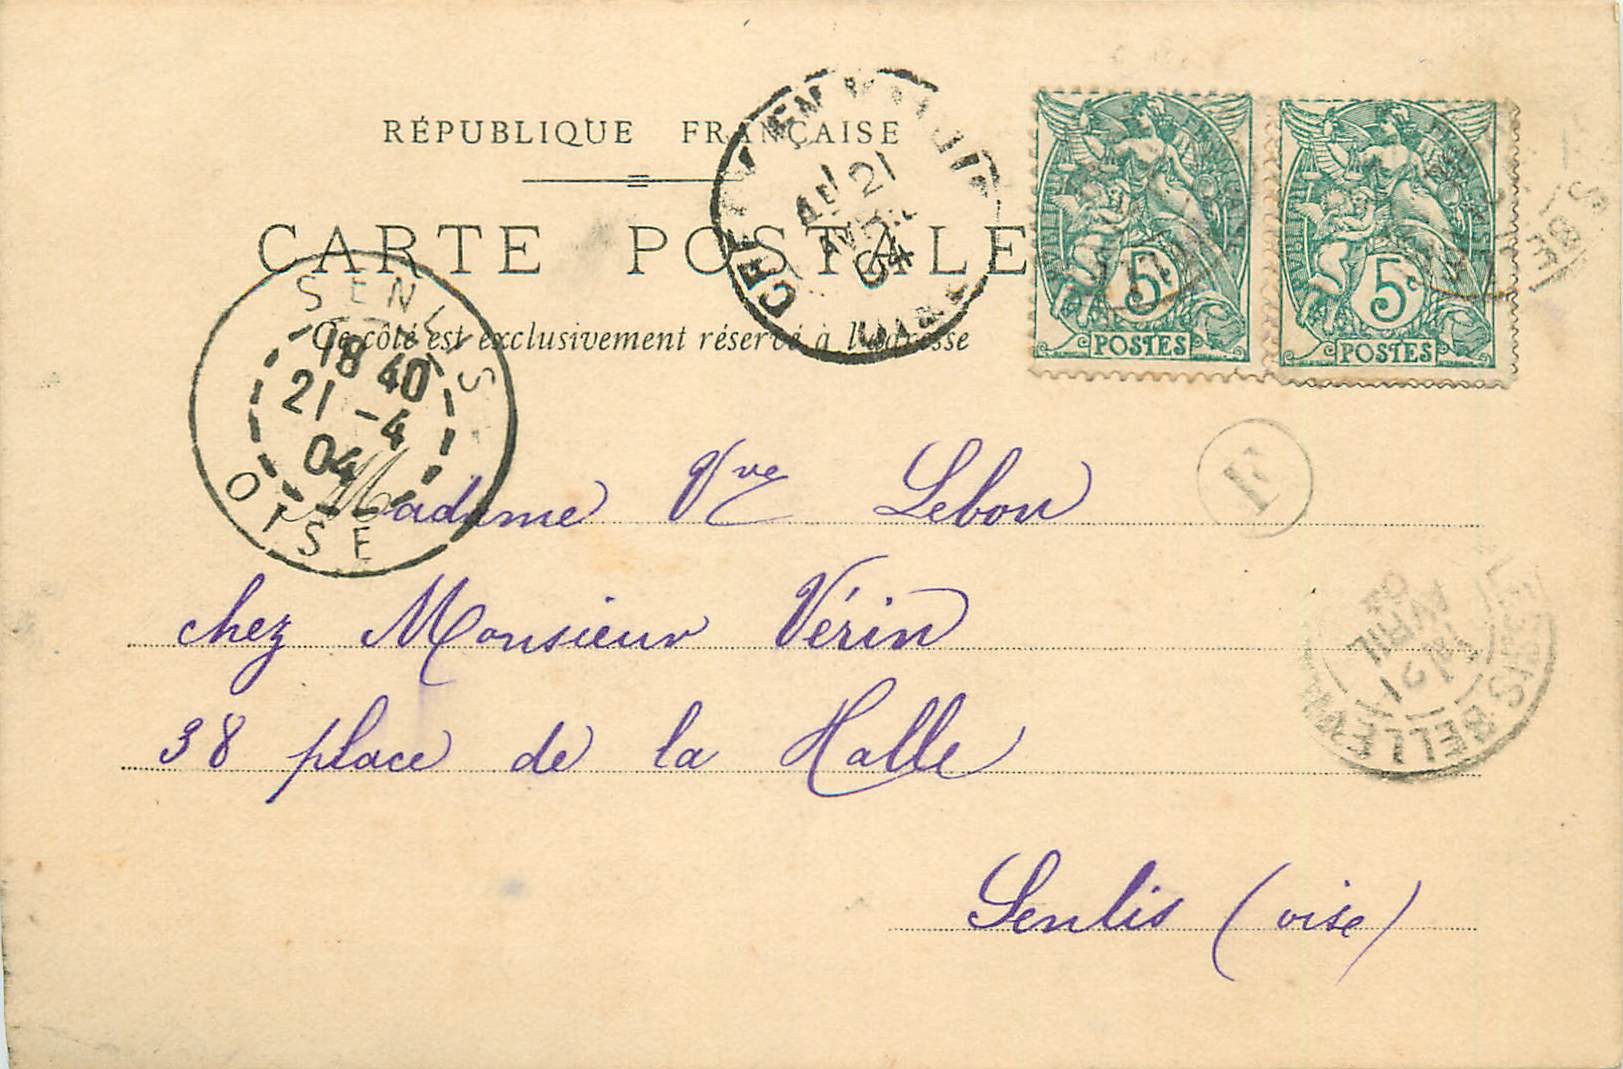 RÉPUBLIQUE FRANÇAISE
CARTE POSTALE
Ce côté est exclusivement réservé à l'adresse
5c
POSTES
5c
POSTES
SENLIS
18 40
21 -4
04
OISE
21
04
F
Madame Vve Lebon
chez Monsieur Vérin
38 place de la Halle
Senlis (oise)
21
AVRIL
04
PLESSIS-BELLEVILLE